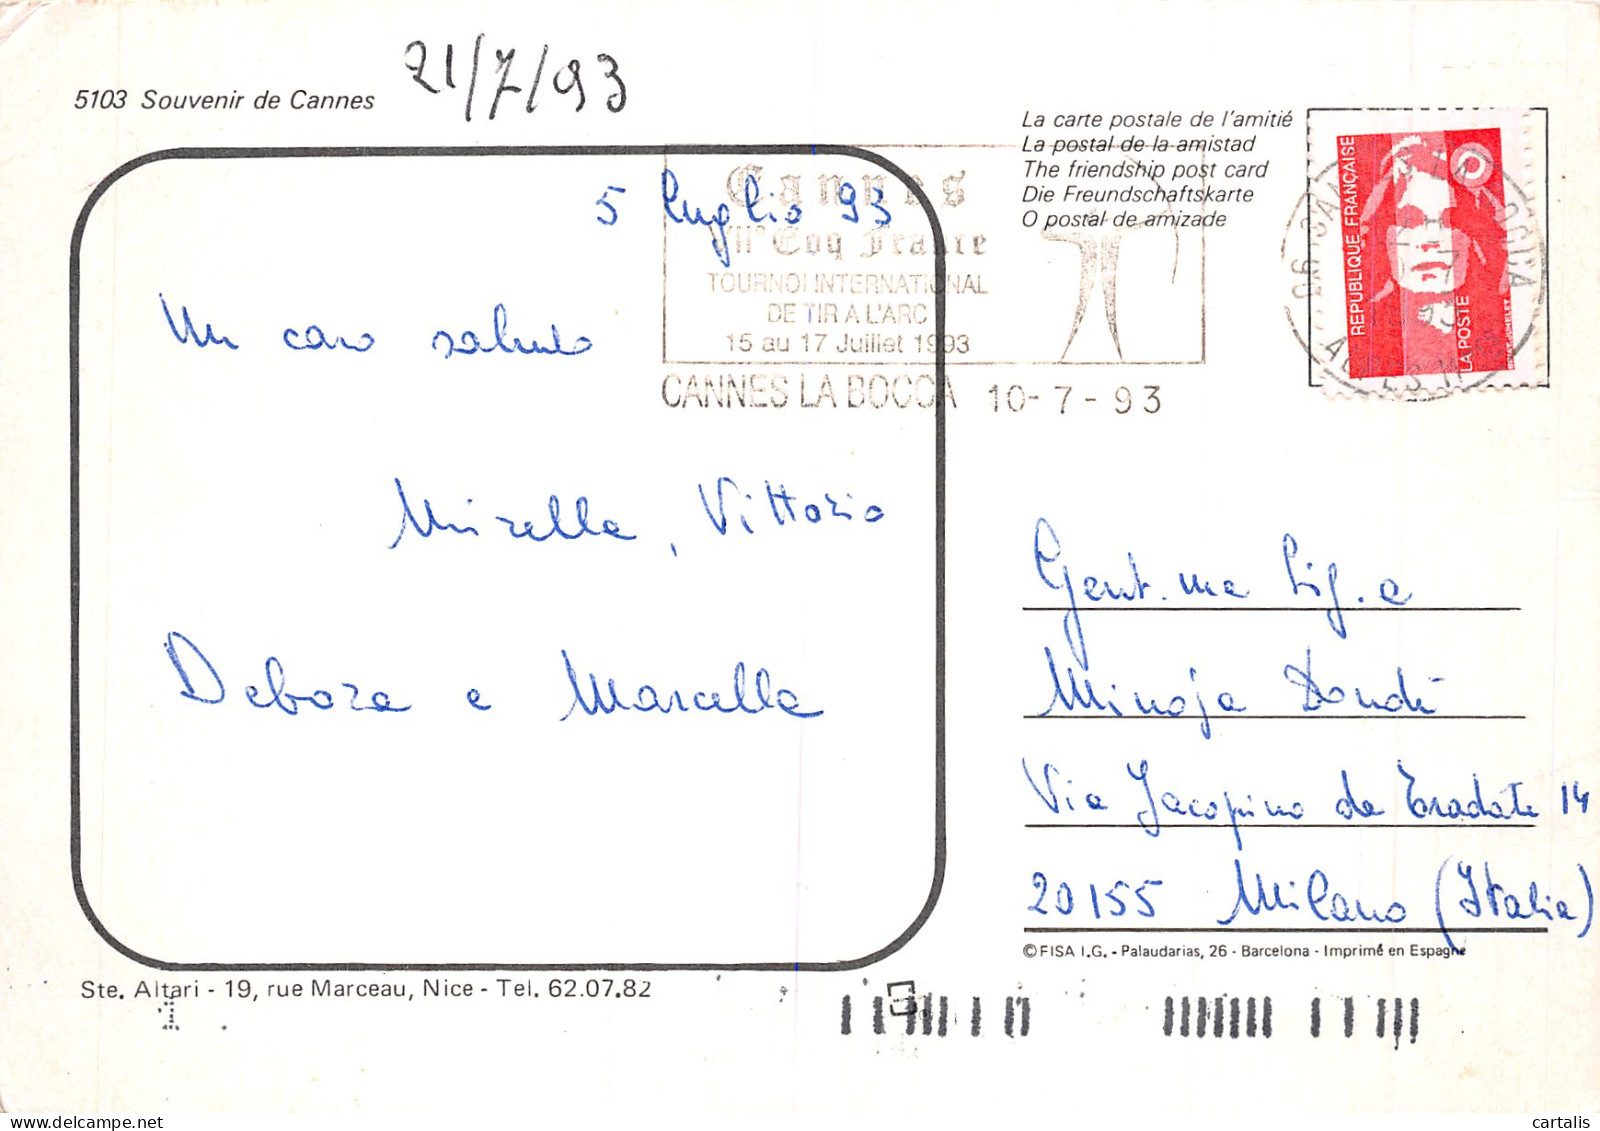 21/7/93
5103 Souvenir de Cannes
La carte postale de l'amitié
La postal de la amistad
The friendship post card
Die Freundschaftskarte
O postal de amizade
REPUBLIQUE FRANÇAISE
LA POSTE
Cannes
VIIe Coq France
TOURNOI INTERNATIONAL
DE TIR A L'ARC
15 au 17 Juillet 1993
CANNES LA BOCCA 10-7-93
5 luglio 93
Un caro saluto
Mirella, Vittorio
Debora e Marcella
Gent.ma Sig.a
Minoja Dondi
Via Jacopino da Tradate 14
20155 Milano (Italia)
© FISA I.G. - Palaudarias, 26 - Barcelona - Imprimé en Espagne
Ste. Altari - 19, rue Marceau, Nice - Tel. 62.07.82
1
cartalis